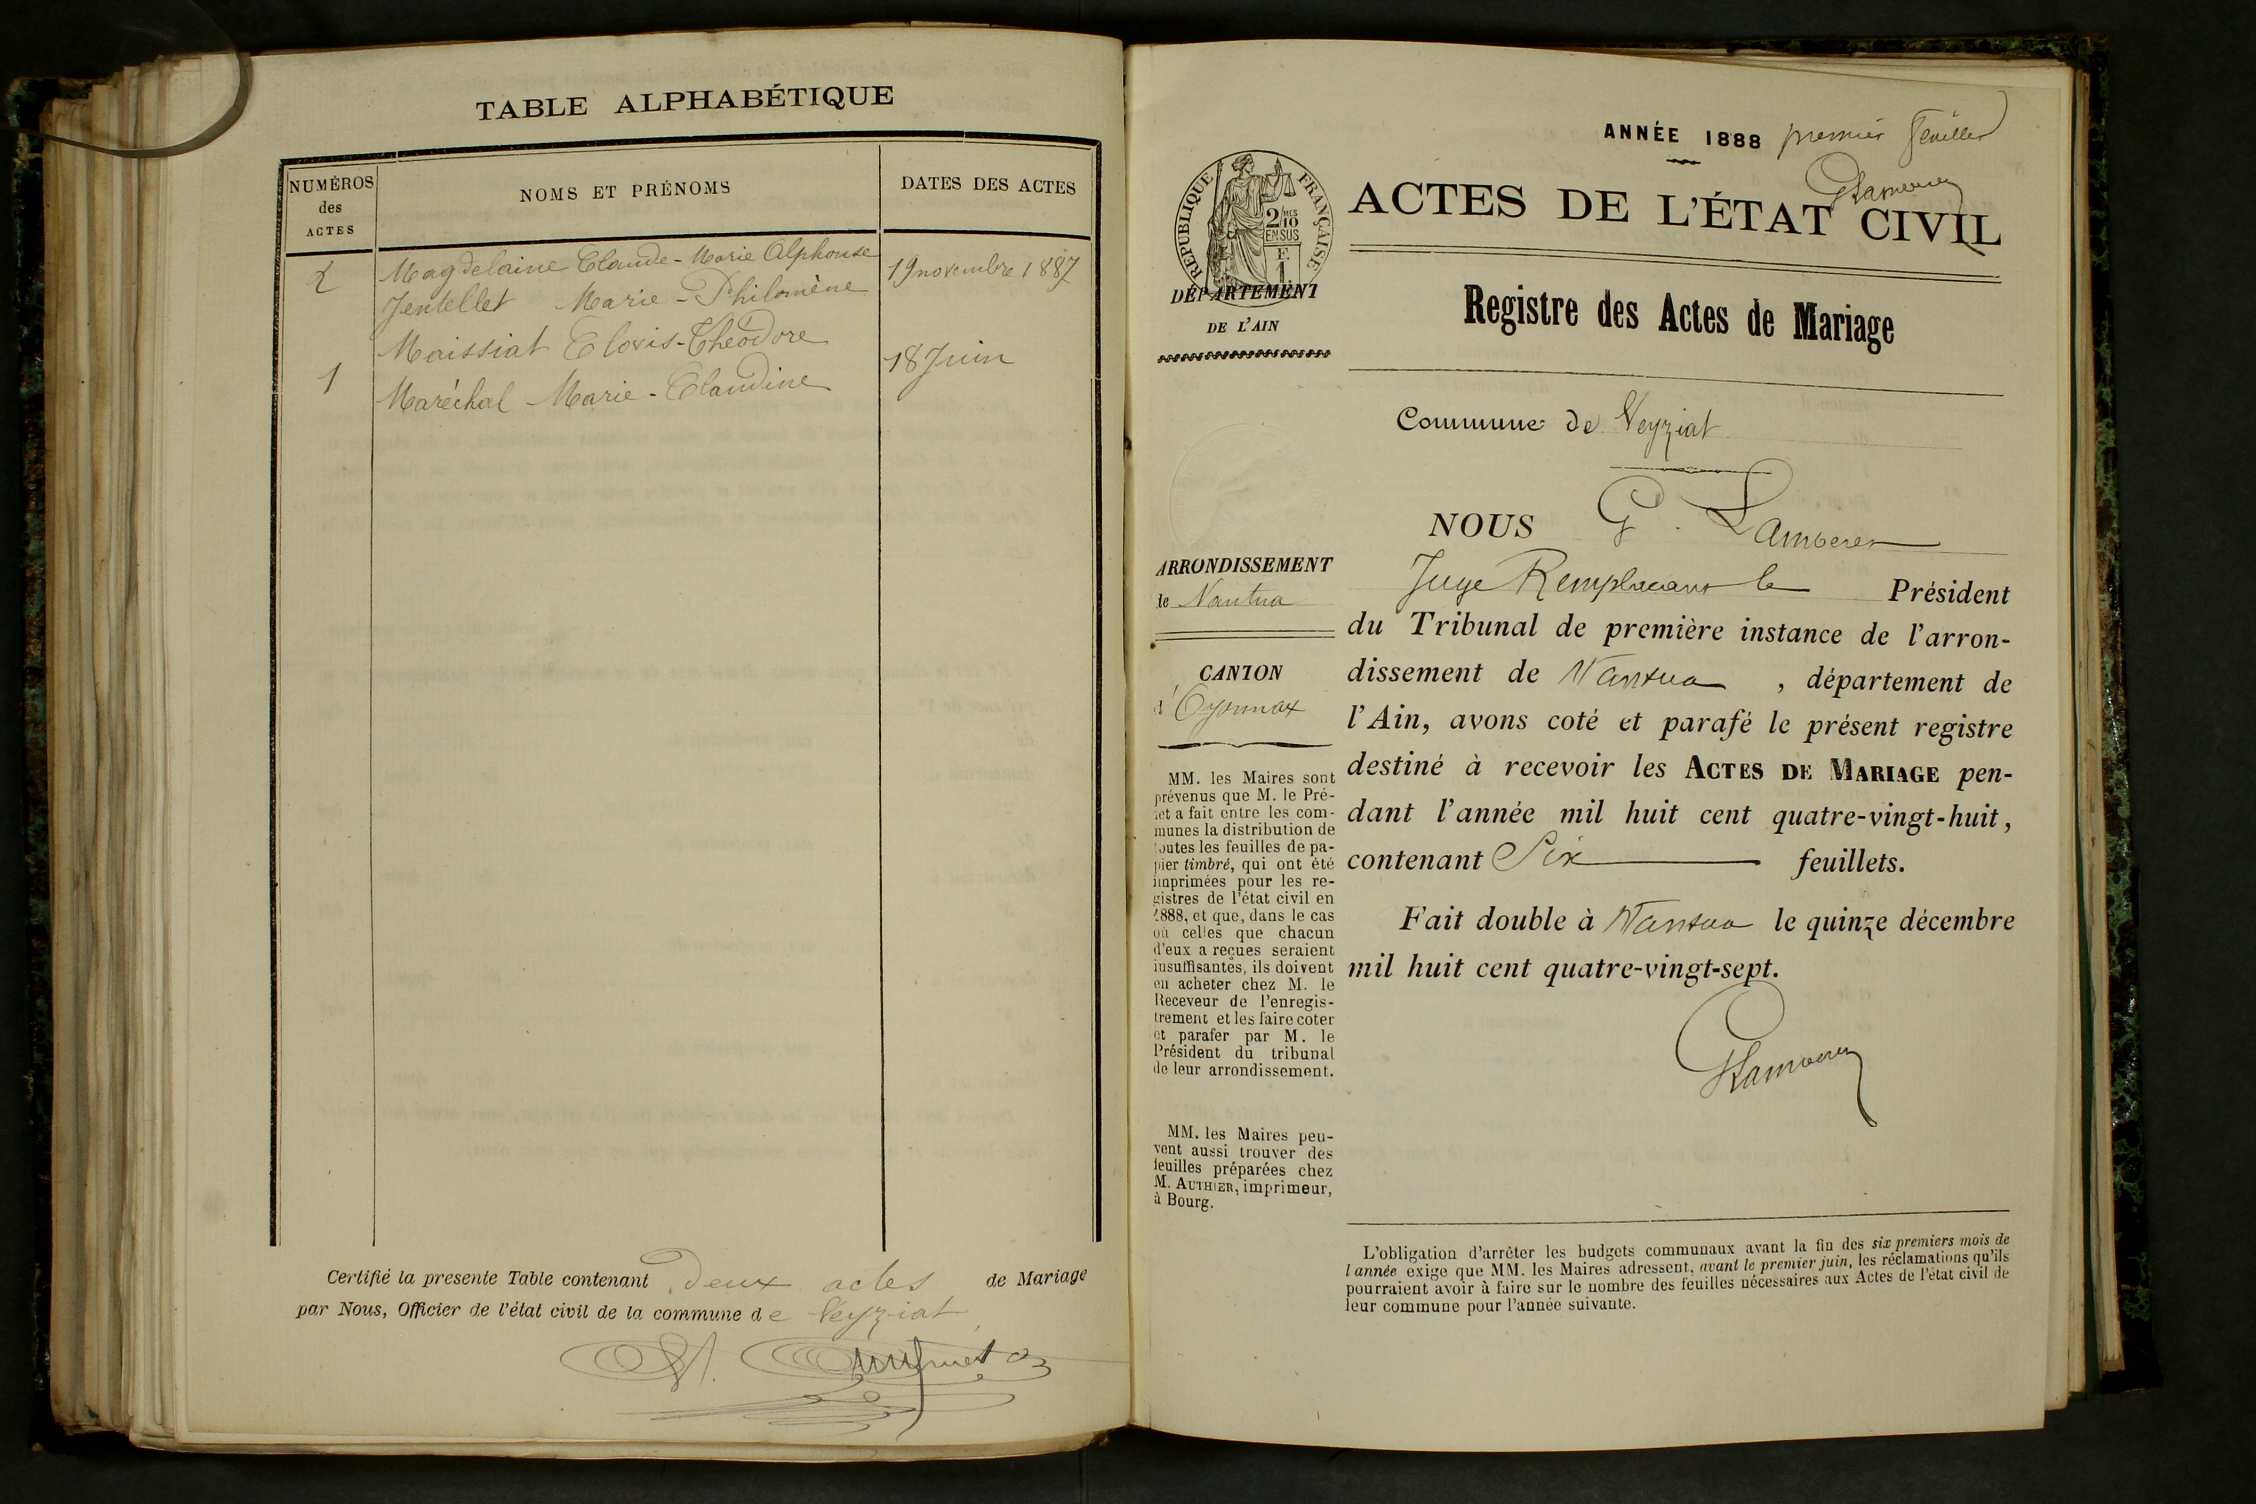 TABLE ALPHABÉTIQUE
NUMÉROS
des
ACTES
NOMS ET PRÉNOMS
DATES DES ACTES
2
Magdelaine Claude-Marie Alphonse
19 novembre 1887
Jentellet Marie-Philomène
Maissiat Clovis-Théodore
1
18 Juin
Maréchal Marie-Claudine
Certifié la presente Table contenant deux actes de Mariage
par Nous, Officier de l'état civil de la commune de Veyziat
ANNÉE 1888 premier feuillet
REPUBLIQUE FRANÇAISE
2/10 MES
EN SUS
F.
1
DÉPARTEMENT
DE L'AIN
ARRONDISSEMENT
de Nantua
CANTON
d'Oyonnax
MM. les Maires sont
prévenus que M. le Pré-
fet a fait entre les com-
munes la distribution de
toutes les feuilles de pa-
pier timbré, qui ont été
imprimées pour les re-
gistres de l'état civil en
1888, et que, dans le cas
où celles que chacun
d'eux a reçues seraient
insuffisantes, ils doivent
en acheter chez M. le
Receveur de l'enregis-
trement et les faire coter
et parafer par M. le
Président du tribunal
de leur arrondissement.
MM. les Maires peu-
vent aussi trouver des
feuilles préparées chez
M. AUTHIER, imprimeur,
à Bourg.
ACTES DE L'ÉTAT CIVIL
Registre des Actes de Mariage
Commune de Veyziat
NOUS G.
Juge Remplacant le Président
du Tribunal de première instance de l'arron-
dissement de Nantua , département de
l'Ain, avons coté et parafé le présent registre
destiné à recevoir les ACTES DE MARIAGE pen-
dant l'année mil huit cent quatre-vingt-huit,
contenant Six feuillets.
Fait double à Nantua le quinze décembre
mil huit cent quatre-vingt-sept.
L'obligation d'arrêter les budgets communaux avant la fin des six premiers mois de
l'année exige que MM. les Maires adressent, avant le premier juin, les réclamations qu'ils
pourraient avoir à faire sur le nombre des feuilles nécessaires aux Actes de l'état civil de
leur commune pour l'année suivante.